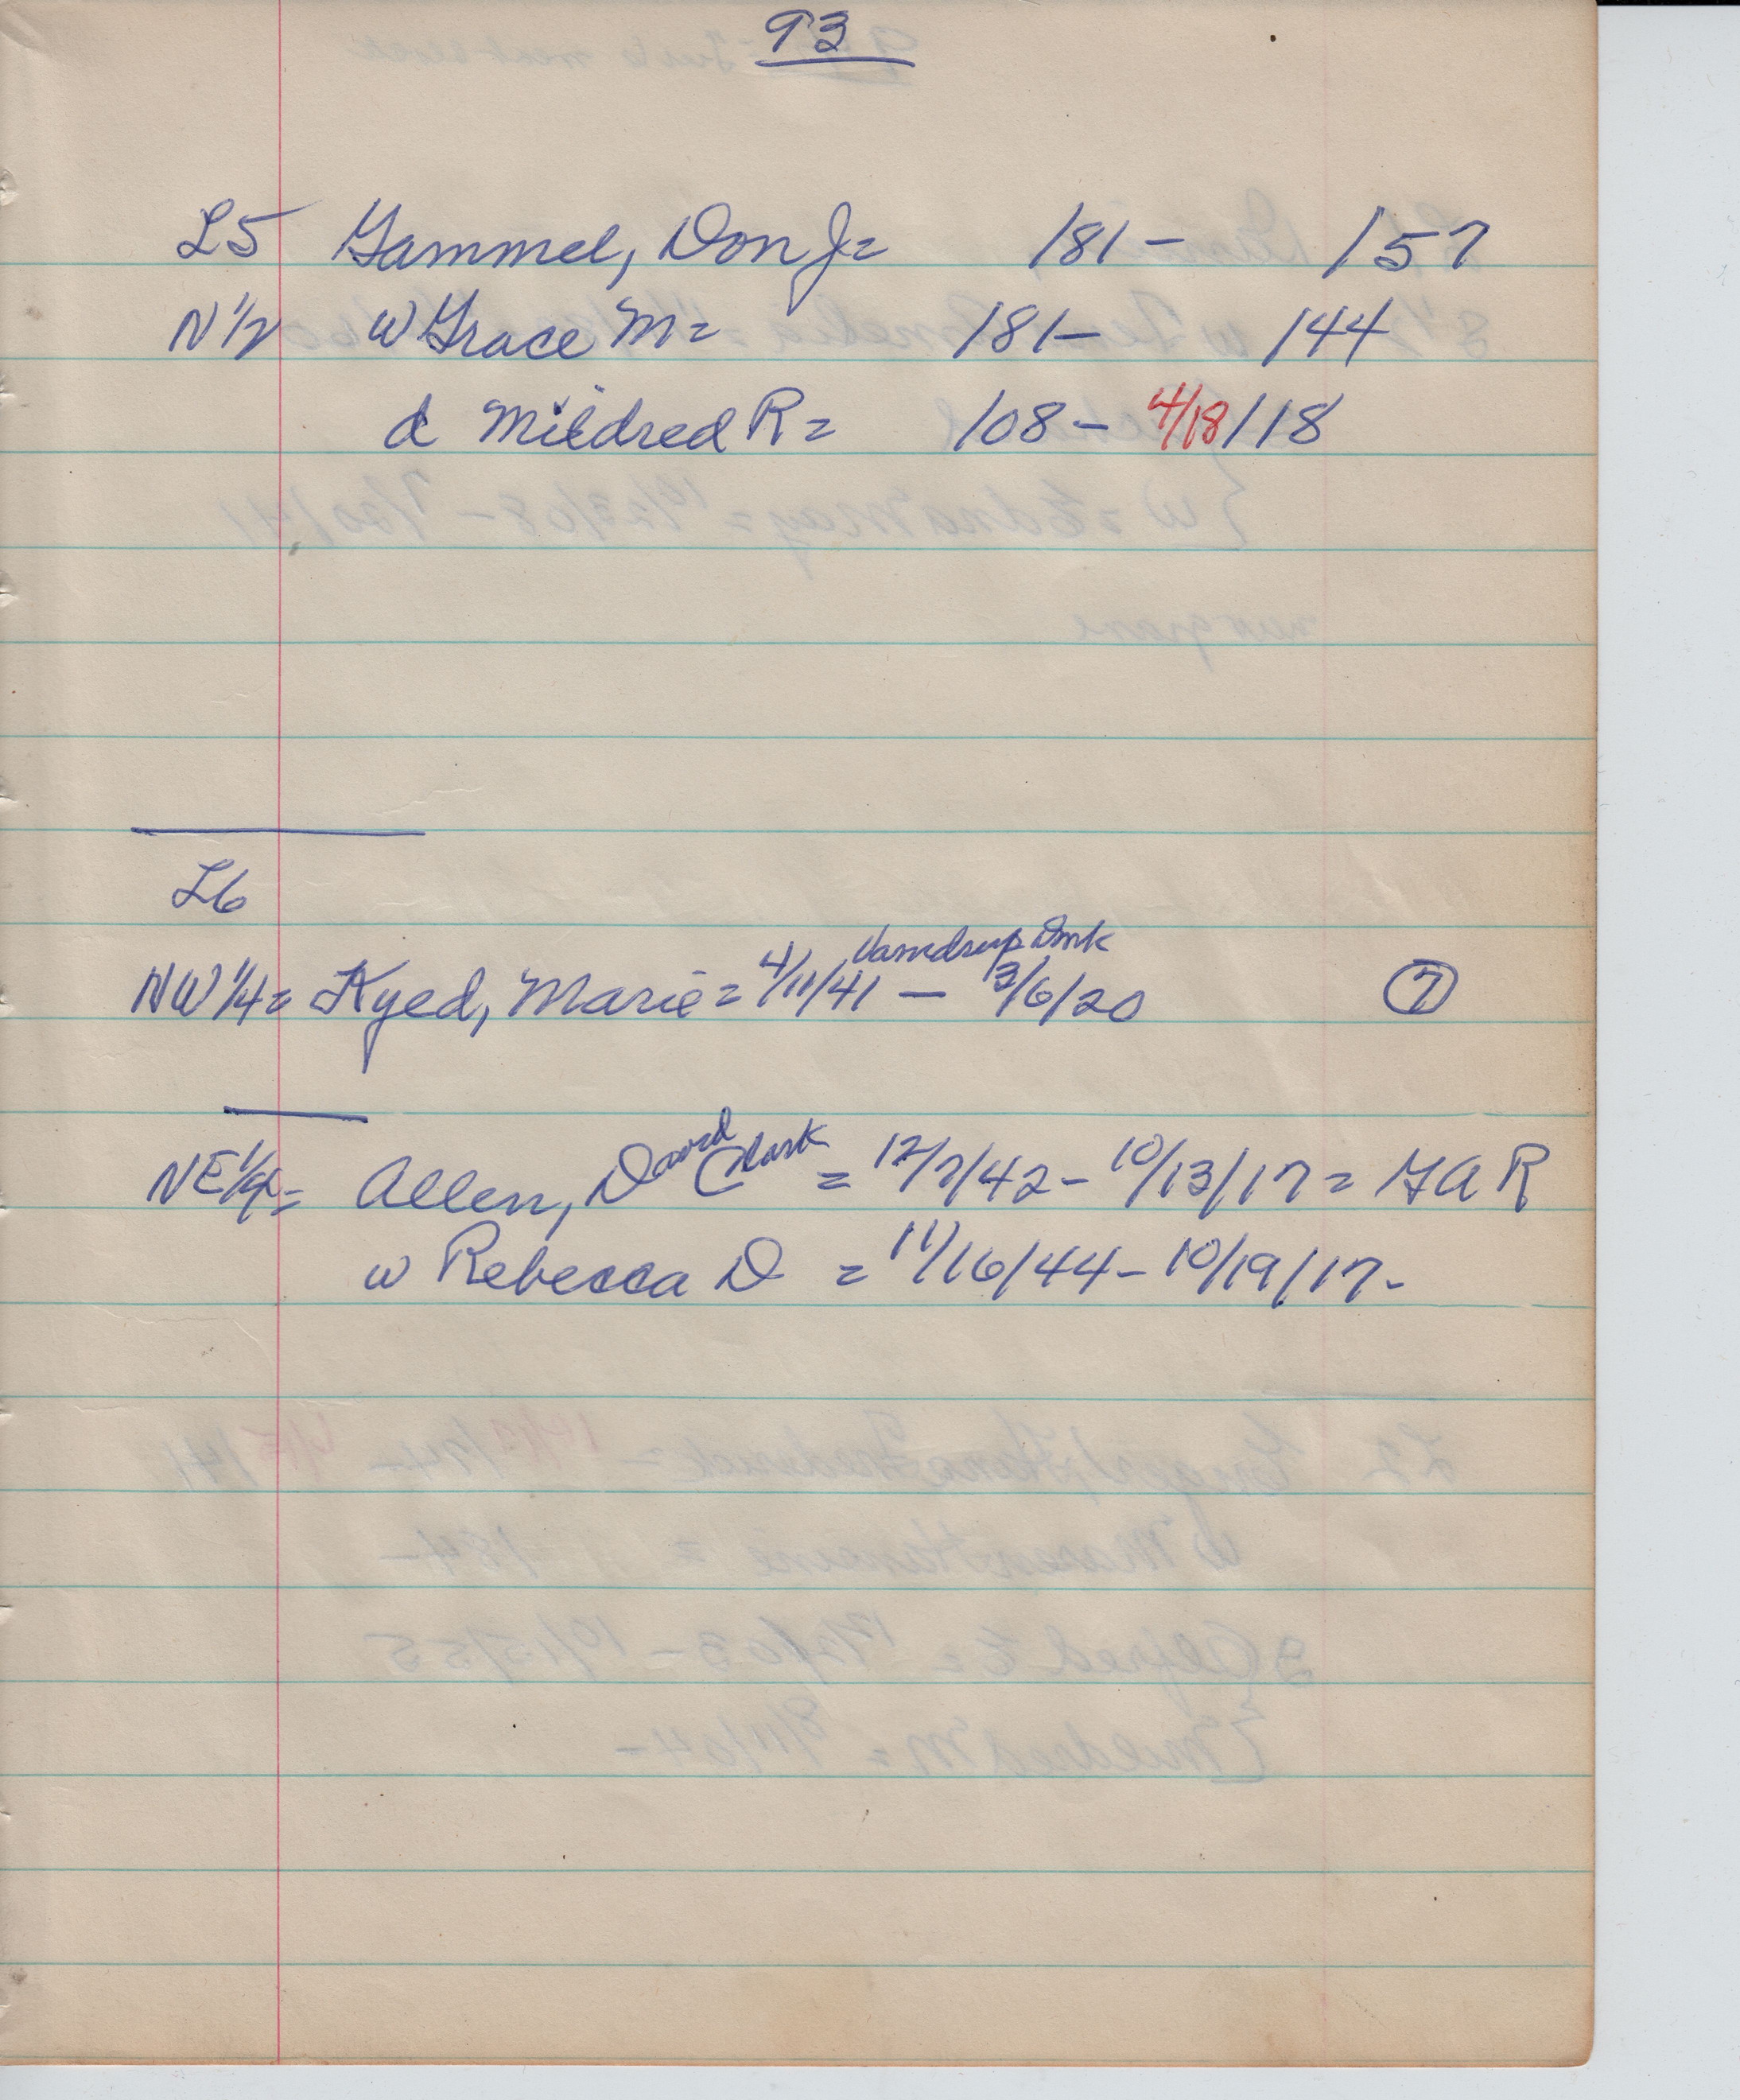 93
L5 Gammel, Don J= /81- /57
N 1/2 w Grace M= /81- /44
d Mildred R= /08- 4/18/18
L6
Vamdrup Dmk
NW 1/4= Kyed, Marie= 4/11/41 - 3/6/20 (7)
NE 1/4= Allen, David Clark = 12/7/42- 10/13/17= GAR
w Rebecca D = 11/16/44- 10/19/17-